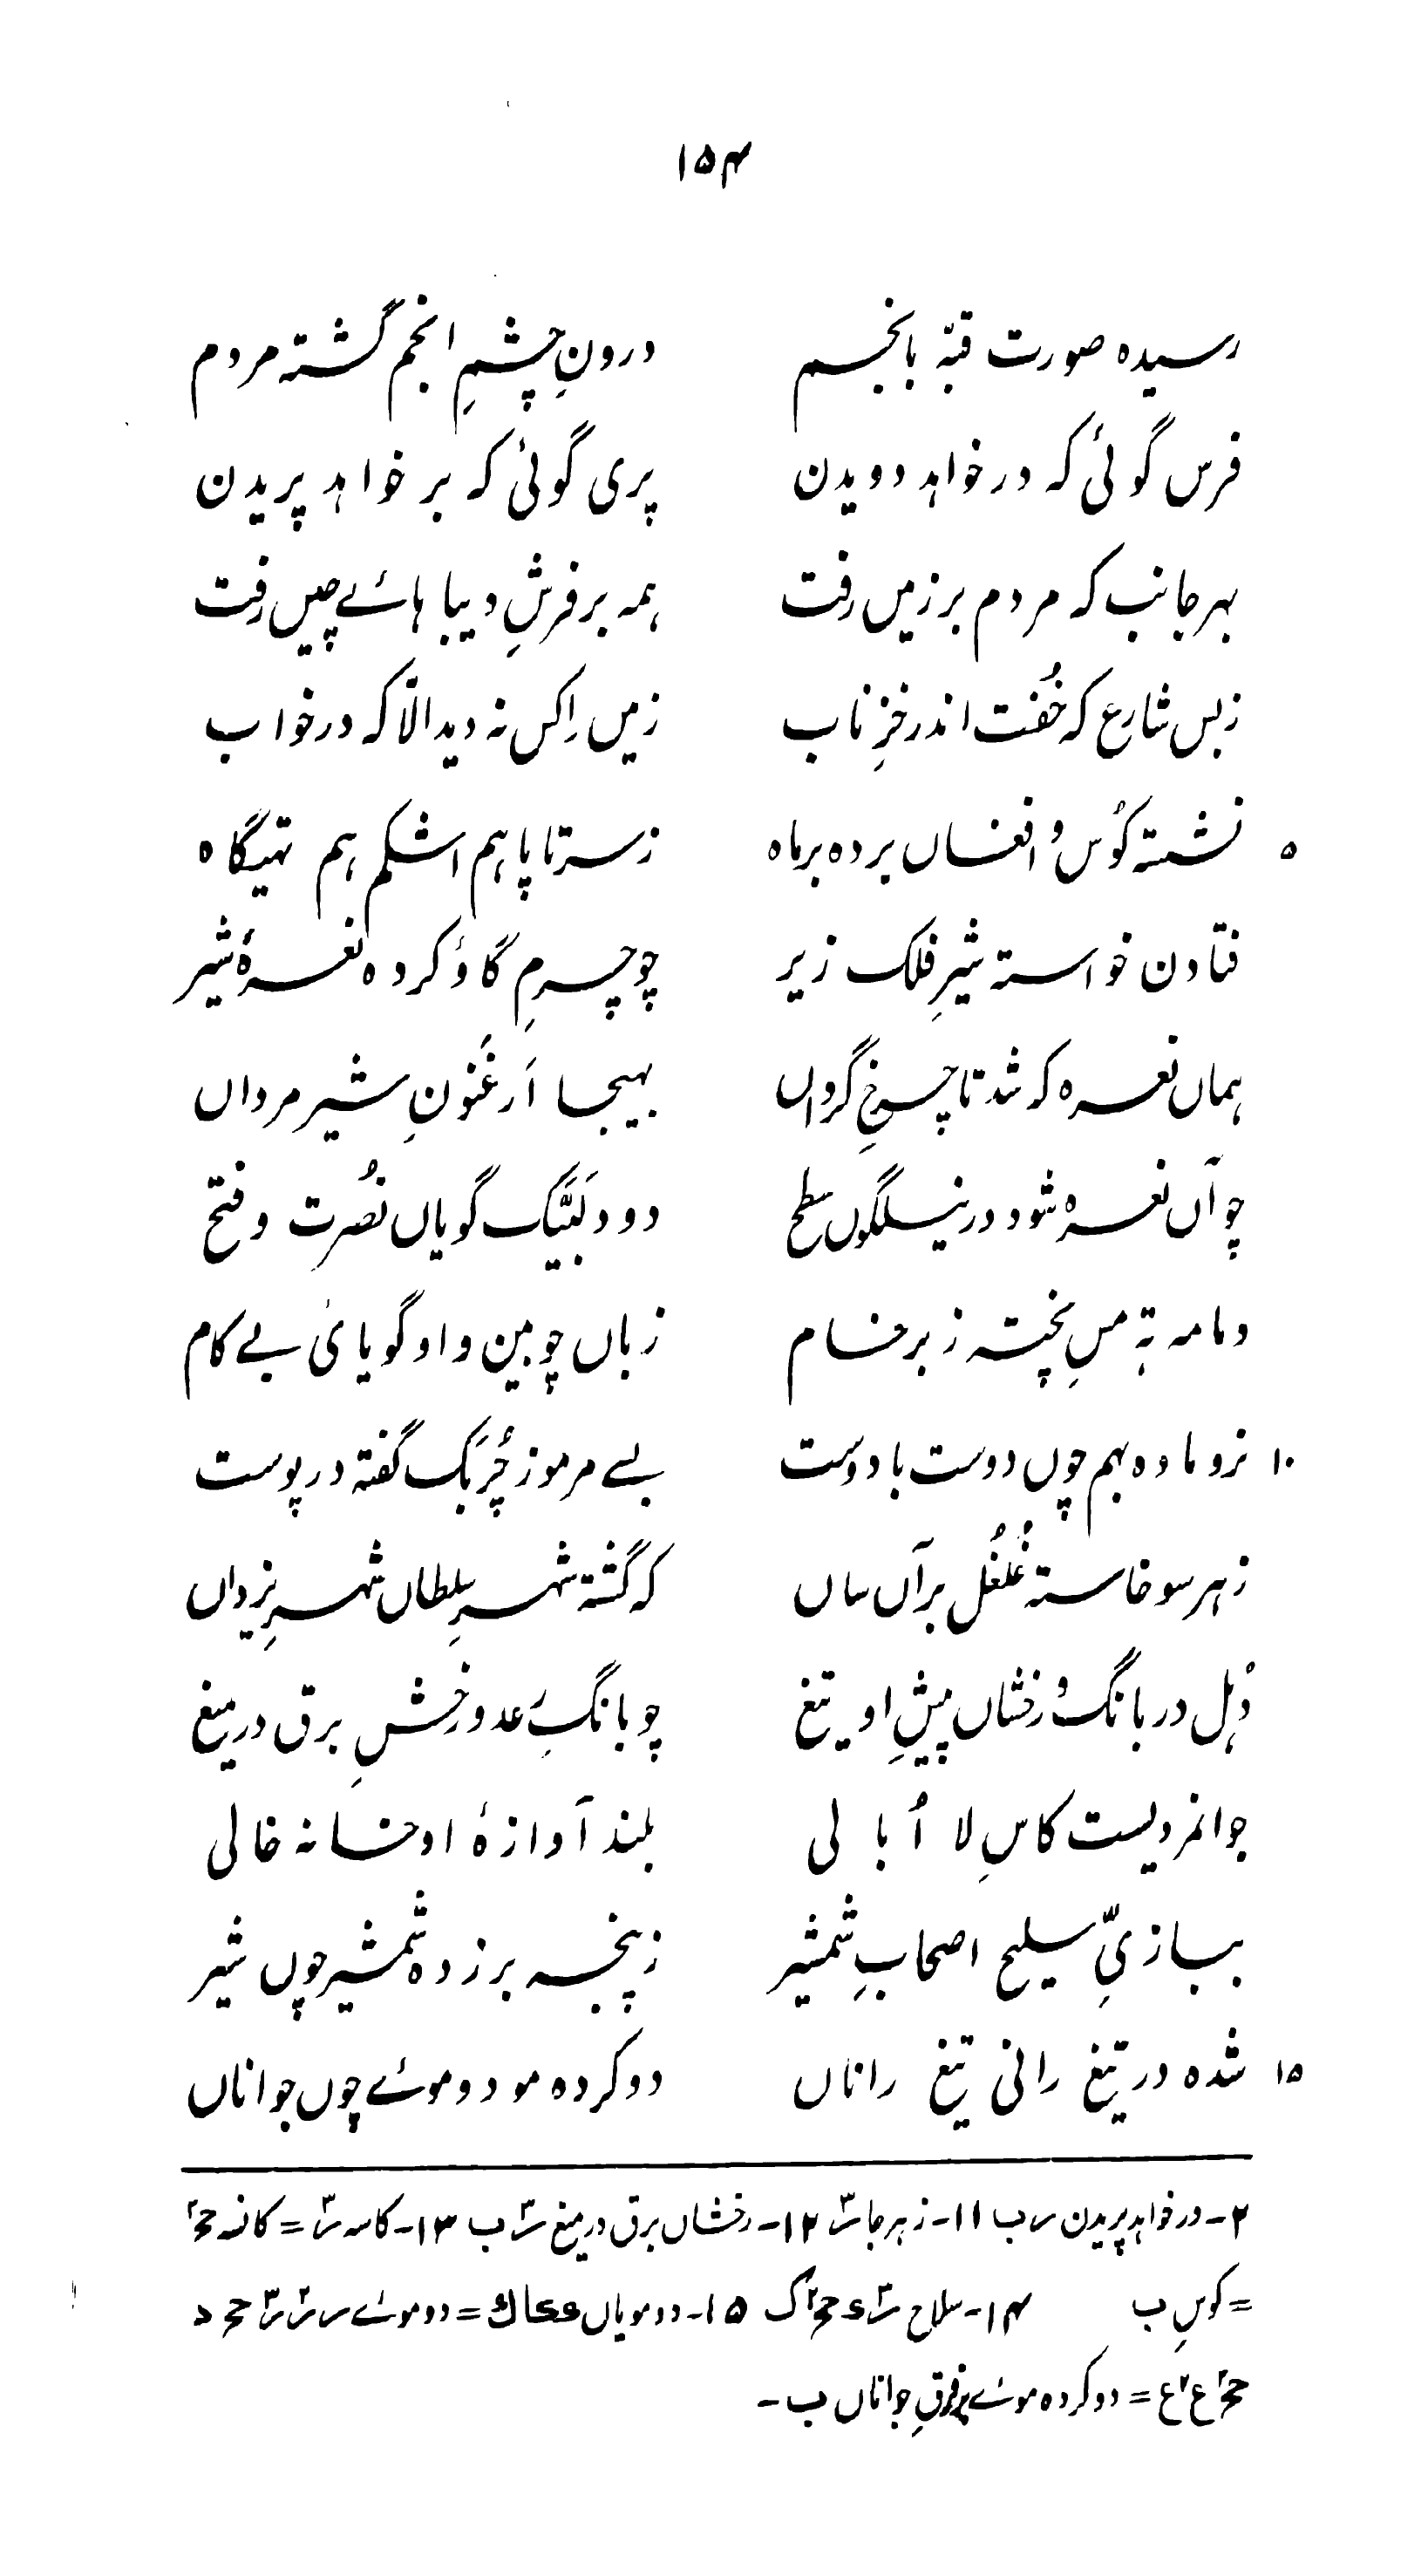 ۱۵۴
رسیدہ صورت قبّہ بانجم درونِ چشمِ انجم گشتہ مردم
فرس گوئی کہ در خواہد دویدن پری گوئی کہ بر خواہد پریدن
بہر جانب کہ مردم بر زمیں رفت ہمہ بر فرشِ دیبا ہائے چیں رفت
زبس شارع کہ خُفت اندر خزِ ناب زمیں را کس نہ دید الّا کہ در خواب
۵ نشستہ کوُس و افغاں بردہ بر ماہ ز سر تا پا ہم اشکم ہم تہیگاہ
فتادن خواستہ شیرِ فلک زیر چو چرمِ گاؤ کردہ نعرۂ شیر
ہماں نعرہ کہ شد تا چرخِ گرداں بہیجا اَرغَنُونِ شیر مرداں
چو آں نعرہ شود در نیلگوں سطح دود لَبَّیک گویاں نُصرت و فتح
دمامہ تہ مسِ پختہ زبر خام زباں چوبین و او گویائ بے کام
۱۰ نر و مادہ بہم چوں دوست با دوست بسے مرموز چُربَک گفتہ در پوست
زہر سو خاستہ غُلغُل بر آں ساں کہ گشتہ شہرِ سلطاں شہرِ یزداں
دُہل در بانگ و رخشاں پیشِ او تیغ چو بانگِ رعد و رخشِ برق در میغ
جوانمردیست کاسِ لا اُبالی بلند آوازۂ او خانہ خالی
ببازیِّ سلیح اصحابِ شمشیر ز پنجہ بر زدہ شمشیر چوں شیر
۱۵ شدہ در تیغ رانی تیغ راناں دو کردہ مو دو موئے چوں جواناں
۲۔ در خواہد پریدن س ب ۱۱۔ زہر جا س۳ ۱۲۔ رخشاں برق در میغ س۳ ب ۱۳۔ کاسہ س۳ = کانہ ح۲
= کوسِ ب ۱۴۔ سلاح س۳ ع ح۲ ک ۱۵۔ دو مویاں = دو موئے س س۲ س۳ ح د
ح۲ ع۲ ع = دو کردہ موئے بر فرقِ جواناں ب۔